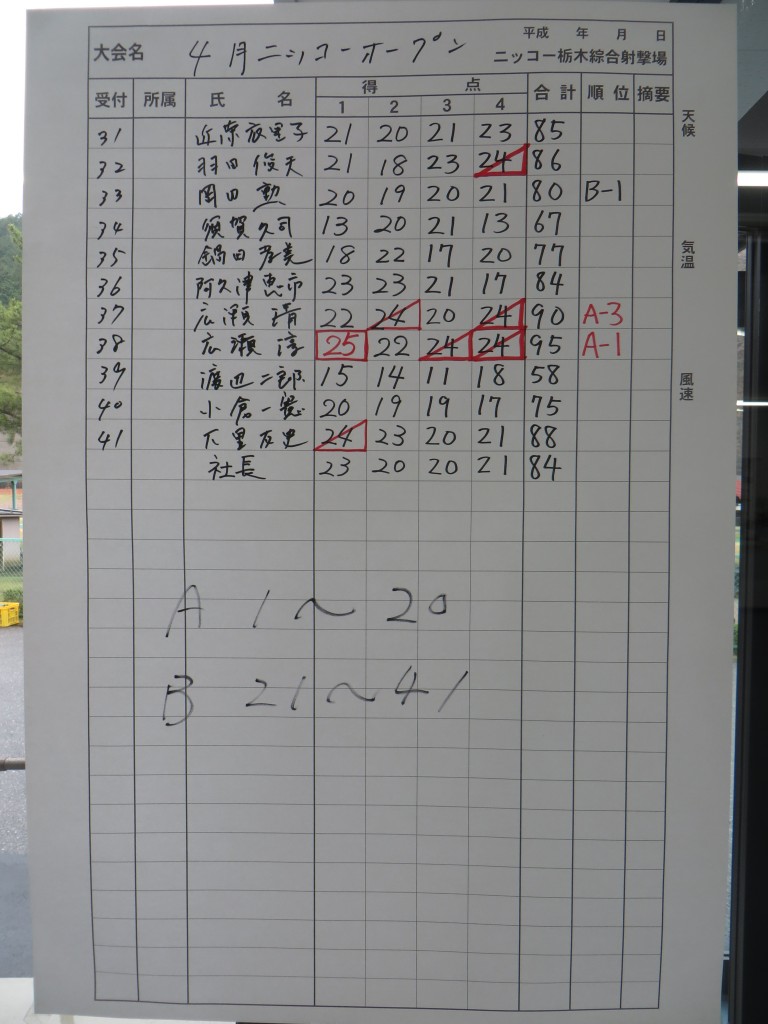 平成 年 月 日
大会名 4月ニッコーオープン ニッコー栃木綜合射撃場
受付 所属 氏 名 得 点 合計 順位 摘要
1 2 3 4
天候
31 近 里子 21 20 21 23 85
32 羽田 俊夫 21 18 23 24 86
33 岡田 勲 20 19 20 21 80 B-1
34 須賀久司 13 20 21 13 67
気温
35 鍋田 孝美 18 22 17 20 77
36 阿久津 恵市 23 23 21 17 84
37 広瀬 靖 22 24 20 24 90 A-3
38 広瀬 淳 25 22 24 24 95 A-1
風速
39 渡辺二郎 15 14 11 18 58
40 小倉一 20 19 19 17 75
41 下里 史 24 23 20 21 88
社長 23 20 20 21 84
A 1〜20
B 21〜41